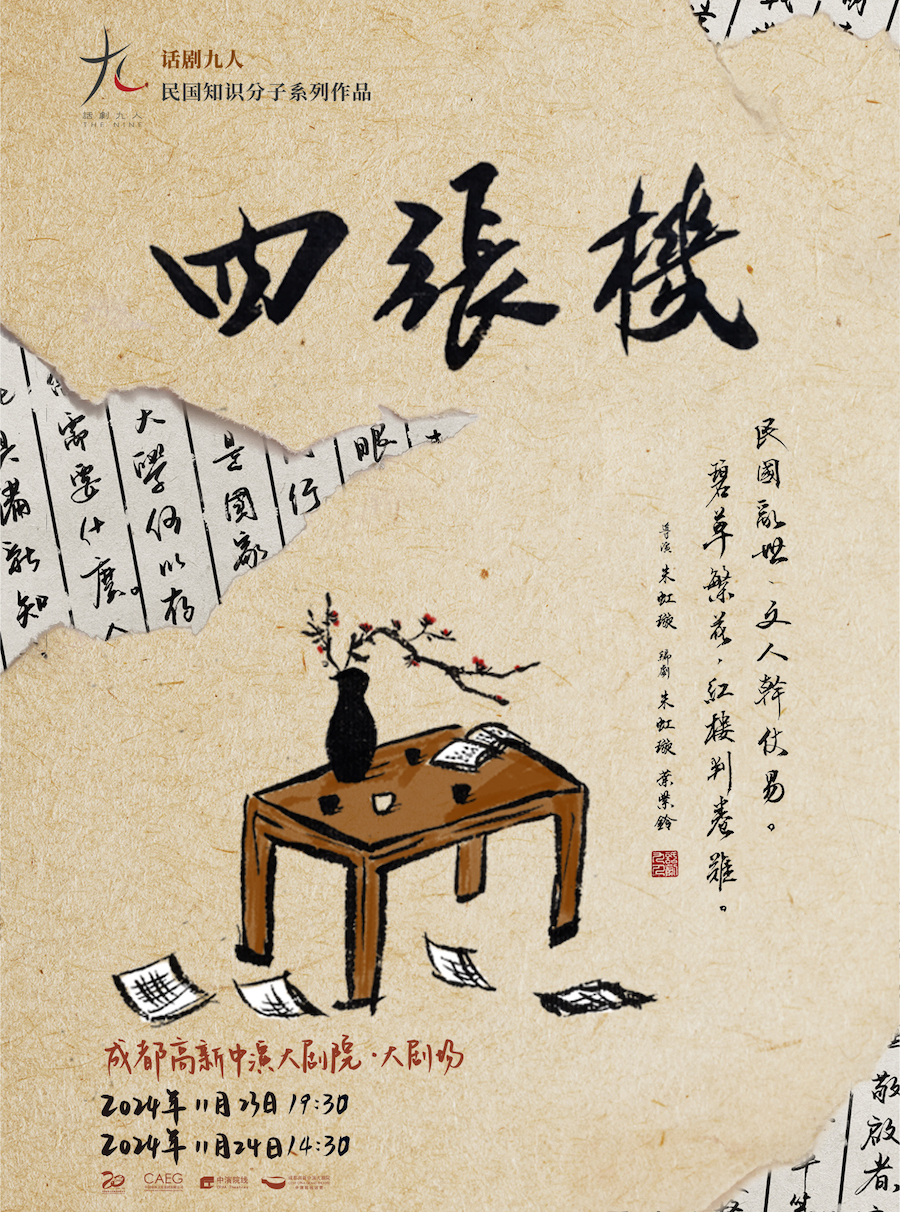 话剧九人
民国知识分子系列作品
話劇九人
THE NINE
四張機
民國亂世、文人幹仗易。
碧草繁花，紅樓判卷難。
导演 朱虹璇 编剧 朱虹璇 葉紫鈴
眼
行
是國家
大學何以存
需要什麼。人
具備新知
成都高新中演大剧院·大剧场
2024年11月23日 19:30
2024年11月24日 14:30
20
CAEG
中演院线
敬啟者